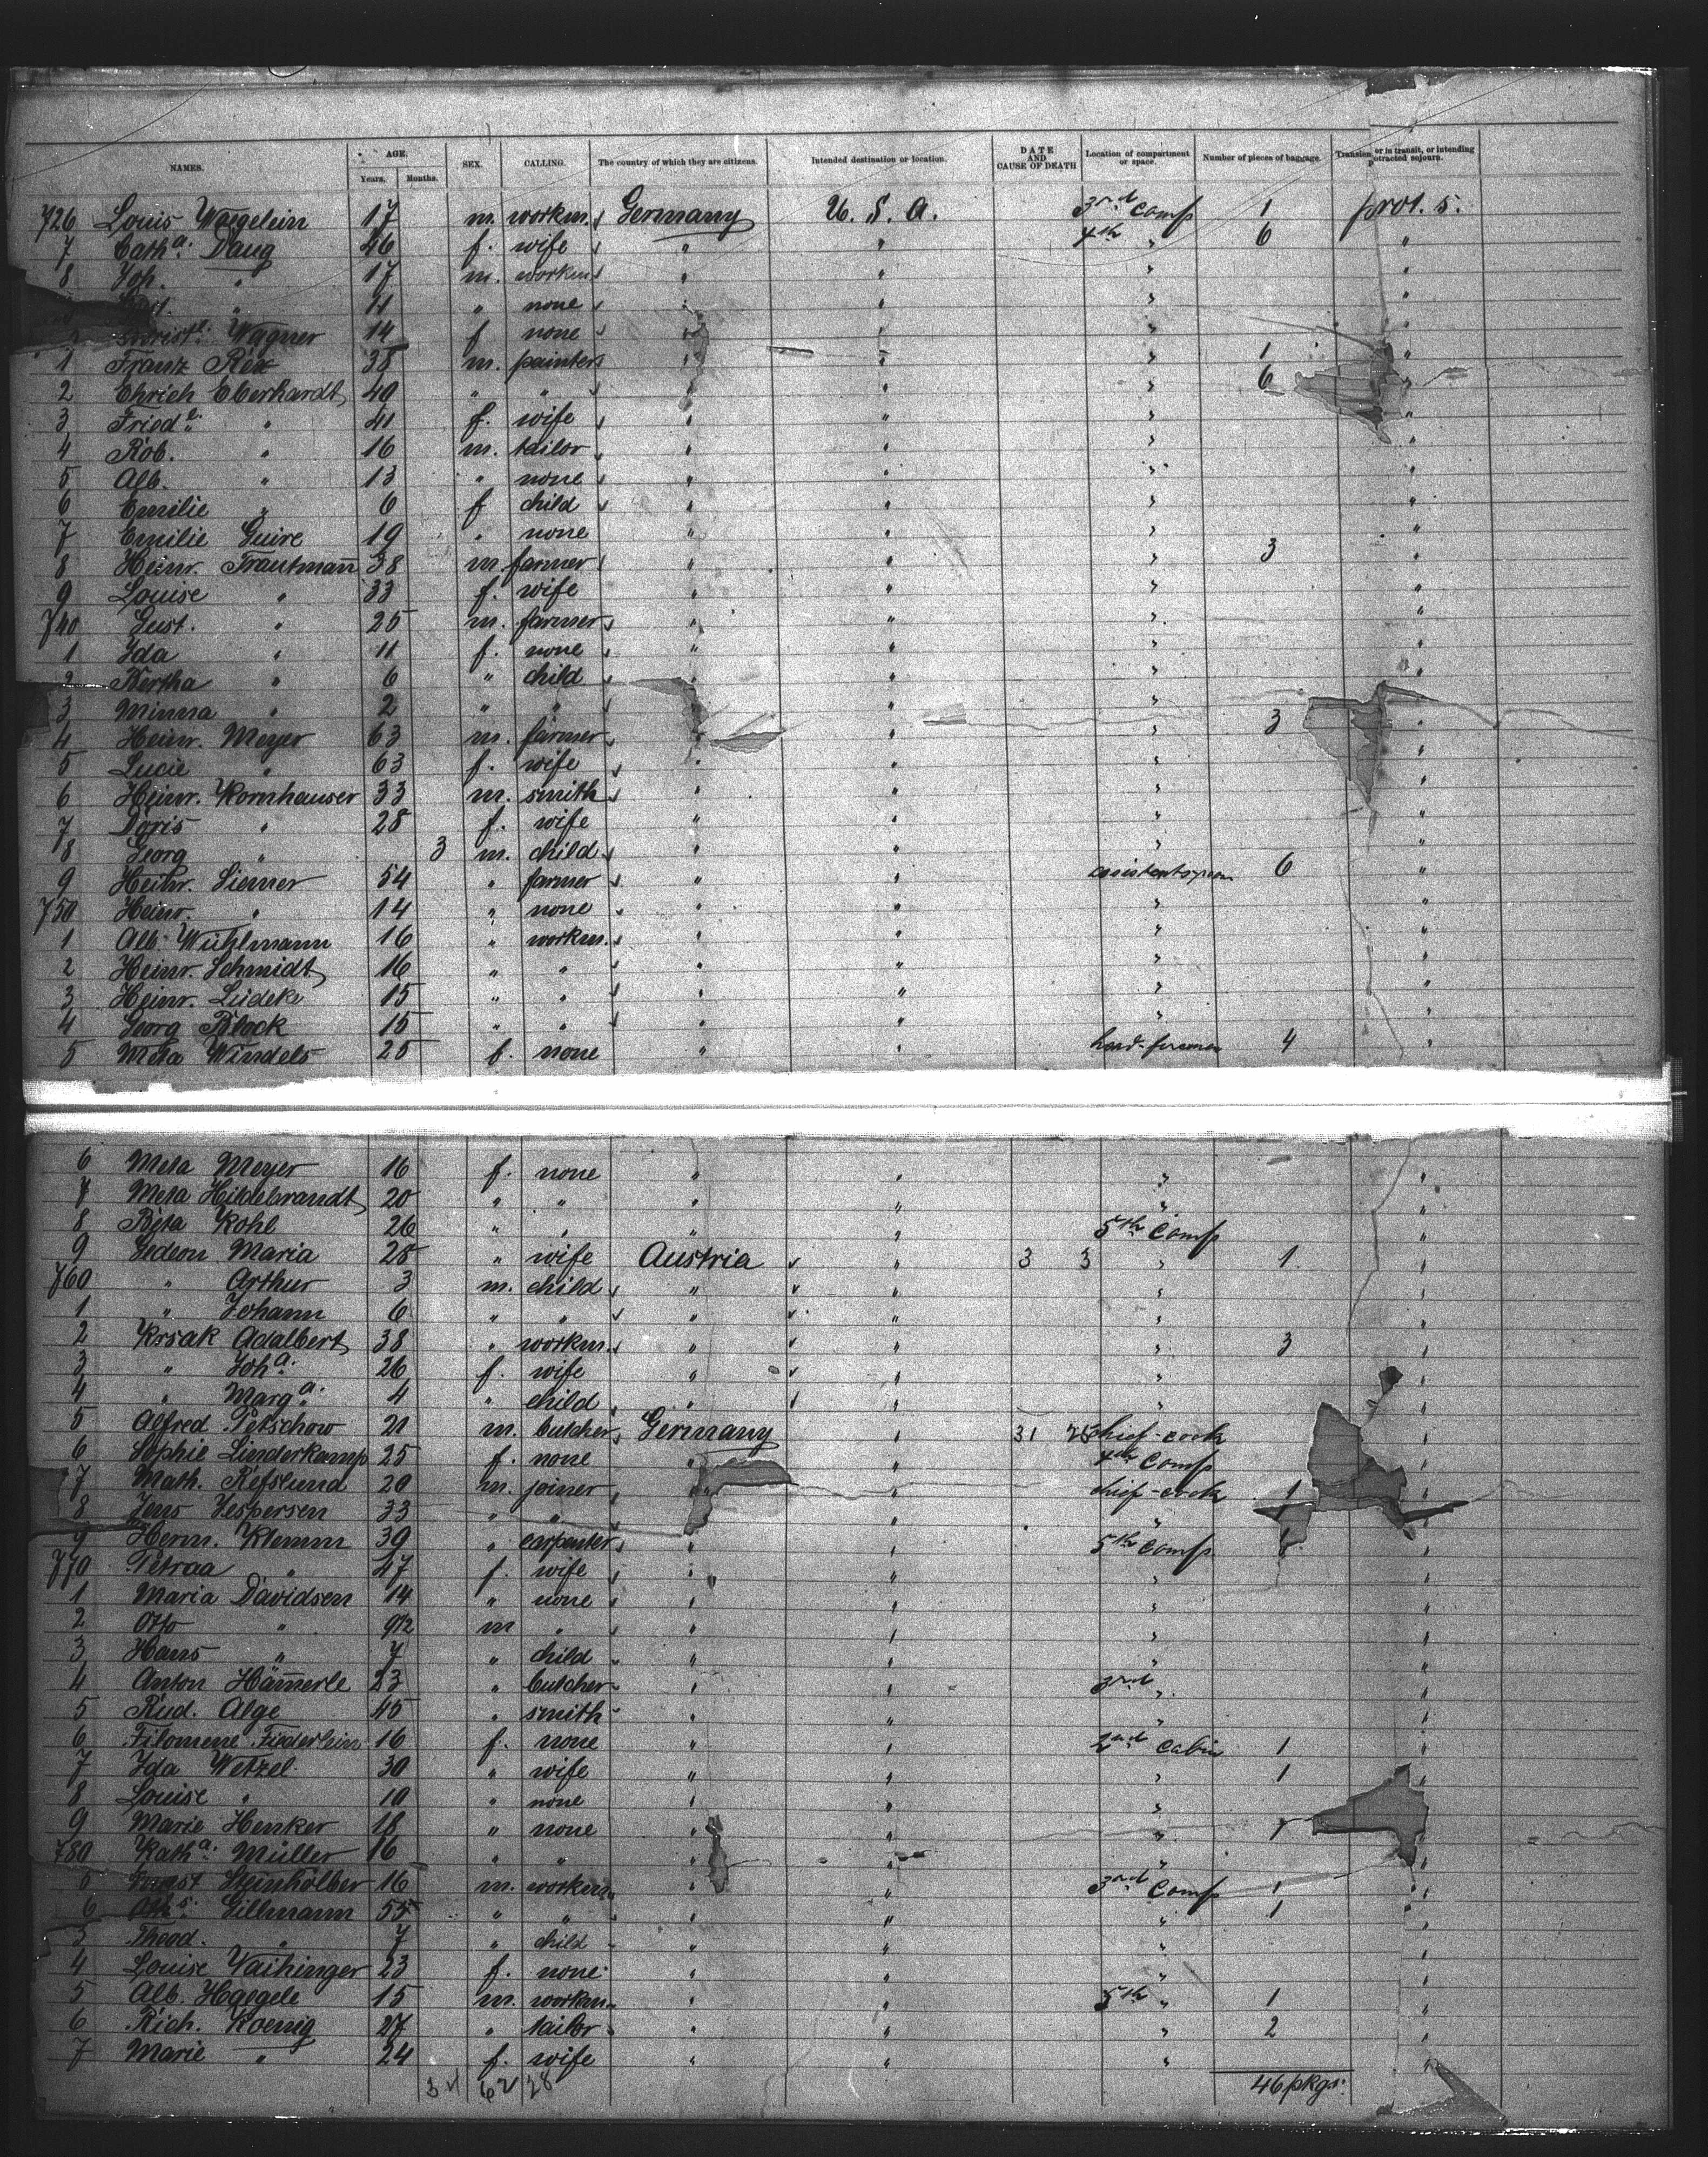 NAMES. AGE. Years. Months. SEX. CALLING. The country of which they are citizens. Intended destination or location. DATE AND CAUSE OF DEATH Location of compartment or space. Number of pieces of baggage. Transient, or in transit, or intending protracted sojourn.
726 Louis Waegelein 17 m. workm. Germany U. S. A. 3rd Comp 1 prot. s.
7 Cath a. Daug 46 f. wife " " 4th " 6 "
8 Joh. " 17 m. workm " " " "
" 11 " none " " " "
Wagner 14 f none " " "
1 Franz Rex 38 m. painter " " 1 "
2 Ehrich Eberhardt 40 " " " " 6 "
3 Fried e. " 41 f. wife " " " "
4 Rob. " 16 m. tailor " " "
5 Alb. " 13 " none " " " "
6 Emilie " 6 f child " " " "
7 Emilie Guire 19 " none " " " "
8 Heinr. Trautmann 38 m farmer " " " 3 "
9 Louise " 33 f. wife " " " "
740 Gust. " 25 m. farmer " " " "
1 Ida " 11 f. none " " " "
2 Bertha " 6 " child " " "
3 Minna " 2 " " " " "
4 Heinr. Meyer 63 m. farmer " " 3 "
5 Lucie " 63 f. wife " " " "
6 Heinr. Kornhauser 33 m. smith " " " "
7 Doris " 28 f. wife " " " "
8 Georg " 3 m. child " " " "
9 Heinr. Siemer 54 " farmer " " 6 "
750 Heinr. " 14 " none " " " "
1 Alb. Wühlmann 16 " workm. " " " "
2 Heinr. Schmidt 16 " " " " " "
3 Heinr. Lüdeke 15 " " " " " "
4 Georg Block 15 " " " " "
5 Meta Windels 25 f. none " " 4 "
6 Meta Meyer 16 f. none " " " "
7 Meta Hildebrandt 20 " " " " " "
8 Beta Kohl 26 " " " " 5th Comp "
9 Gedeon Maria 25 " wife Austria " 3 3 " 1. "
760 " Arthur 3 m. child " " " "
1 " Johann 6 " " " " " "
2 Krsak Adalbert 38 " workm. " " " 3 "
3 " Joh a. 26 f. wife " " "
4 " Marg a. 4 " child " " "
5 Alfred Petschow 21 m. butcher Germany " 31 chief-cook
6 Sophie Linderkamp 25 f. none " " 4th Comp
7 Math. Refslund 20 m. joiner " " chief-cook 1
8 Jens Jespersen 33 " " " "
9 Herm. Klemm 39 " carpenter " " 5th Comp "
770 Petraa " 47 f. wife " " " "
1 Maria Davidsen 14 " none " " " "
2 Otto " 9 1/2 m " " " " "
3 Hans " 7 " child " " " "
4 Anton Hämerle 23 " butcher " " 3rd " "
5 Rud. Alge 45 " smith " " " "
6 Filomene Fiederlein 16 f. none " " 2nd Cabin 1 "
7 Ida Wetzel 30 " wife " " " 1 "
8 Louise " 10 " none " " "
9 Marie Henker 18 " none " " "
780 Kath a. Müller 16 " " " " "
Steinhölber 16 m. workm. " 3rd Comp 1 "
Gillmann 55 " " " " " 1 "
3 Theod. " 7 " child " " " "
4 Louise Vaihinger 23 f. none " " " "
5 Alb. Haegele 15 m. workm. " " 5th " 1 "
6 Rich. Koenig 27 " tailor " " " 2 "
7 Marie " 24 f. wife " " " "
34 62 28 46 pkgs.